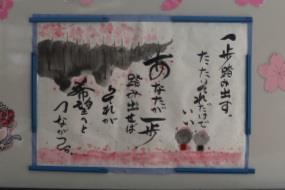 一歩踏み出す。
たったそれだけで
いい
あなたが一歩
踏み出せば
それが
希望へと
つながる。